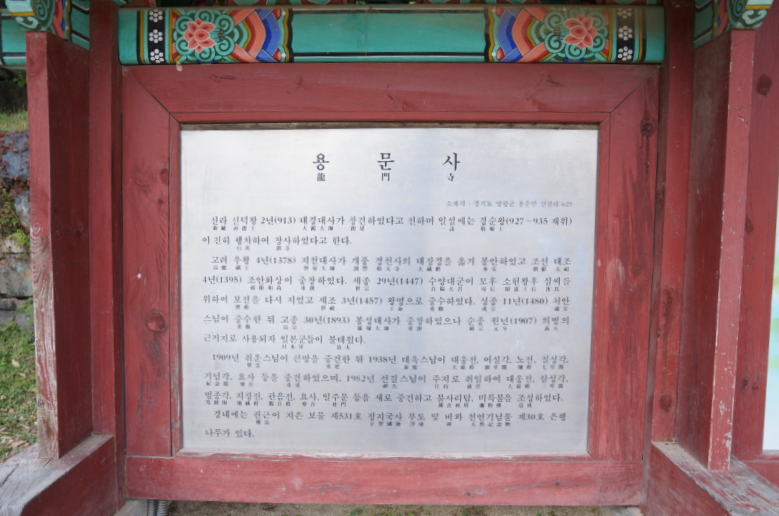 용문사
龍門寺
소재지 : 경기도 양평군 용문면 신점리 625
신라 신덕왕 2년(913) 대경대사가 창건하였다고 전하며 일설에는 경순왕(927~935 재위)
이 친히 행차하여 창사하였다고 한다.
고려 우왕 4년(1378) 지천대사가 개풍 경천사의 대장경을 옮겨 봉안하였고 조선 태조
4년(1395) 조안화상이 중창하였다. 세종 29년(1447) 수양대군이 모후 소헌왕후 심씨를
위하여 보전을 다시 지었고 세조 3년(1457) 왕명으로 중수하였다. 성종 11년(1480) 처안
스님이 중수한 뒤 고종 30년(1893) 봉성대사가 중창하였으나 순종 원년(1907) 의병의
근거지로 사용되자 일본군들이 불태웠다.
1909년 취운스님이 큰방을 중건한 뒤 1938년 태욱스님이 대웅전, 어실각, 노전, 칠성각,
기념각, 요사 등을 중건하였으며, 1982년 선걸스님이 주지로 취임하여 대웅전, 삼성각,
범종각, 지장전, 관음전, 요사, 일주문 등을 새로 중건하고 불사리탑, 미륵불을 조성하였다.
경내에는 권근이 지은 보물 제531호 정지국사 부도 및 비와 천연기념물 제30호 은행
나무가 있다.